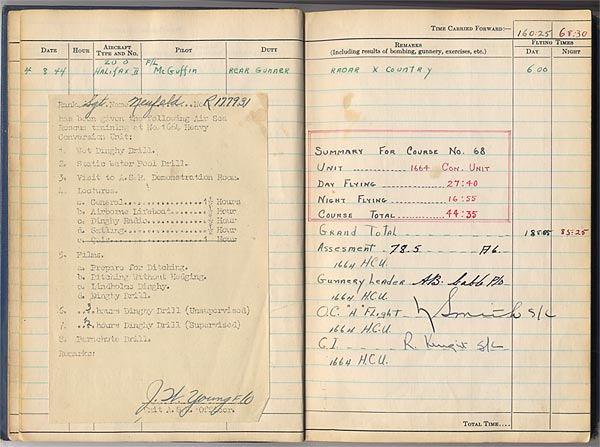 DATE HOUR AIRCRAFT TYPE AND NO. PILOT DUTY
4 8 44 HALIFAX II F/L McGUFFIN REAR GUNNER
Rank Sgt. Name Neufeld No R127931
has been given the following Air Sea
Rescue training at No. 1664 Heavy
Conversion Unit:
1. Wet Dinghy Drill.
2. Static Water Pool Drill.
3. Visit to A.S.R. Demonstration Room.
4. Lectures.
a. General Hours
b. Airborne Lifeboat Hour
c. Dinghy Radio Hour
d. Sailing Hour
e. Quiz 1 Hour
5. Films.
a. Prepare for Ditching.
b. Ditching Without Hedging.
c. Lindholme Dinghy.
d. Dinghy Drill.
6. 3 hours Dinghy Drill (Unsupervised)
7. 2 hours Dinghy Drill (Supervised)
8. Parachute Drill.
Remarks:
J. W. Young F/O
Unit A.S.R. Officer.
TIME CARRIED FORWARD:— 160.25 68.30
REMARKS
(Including results of bombing, gunnery, exercises, etc.)
FLYING TIMES
DAY NIGHT
RADAR X COUNTRY 6.00
SUMMARY FOR COURSE NO. 68
UNIT 1664 CON. UNIT
DAY FLYING 27:40
NIGHT FLYING 16:55
COURSE TOTAL 44:35
GRAND TOTAL 85:25
ASSESMENT 78.5
1664 H.C.U.
GUNNERY LEADER
1664 H.C.U.
O.C. "A" FLIGHT Smith S/L
1664 H.C.U.
C.I. R. S/L
1664 H.C.U.
TOTAL TIME....